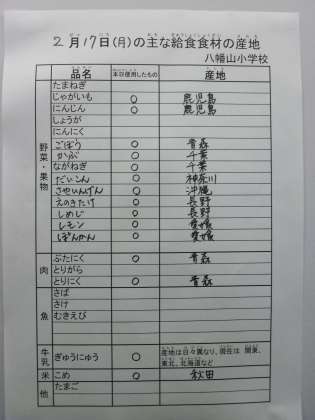 2月17日(月)の主な給食食材の産地
八幡山小学校
品名 本日使用したもの 産地
野菜・果物
たまねぎ
じゃがいも ○ 鹿児島
にんじん ○ 鹿児島
しょうが
にんにく
ごぼう ○ 青森
かぶ ○ 千葉
ながねぎ ○ 千葉
だいこん ○ 神奈川
さやいんげん ○ 沖縄
えのきたけ ○ 長野
しめじ ○ 長野
レモン ○ 愛媛
ぽんかん ○ 愛媛
肉
ぶたにく ○ 青森
とりがら
とりにく ○ 青森
魚
さば
さけ
むきえび
牛乳 ぎゅうにゅう ○ 産地は日々異なり、現在は 関東、
東北、北海道など
米 こめ ○ 秋田
他 たまご